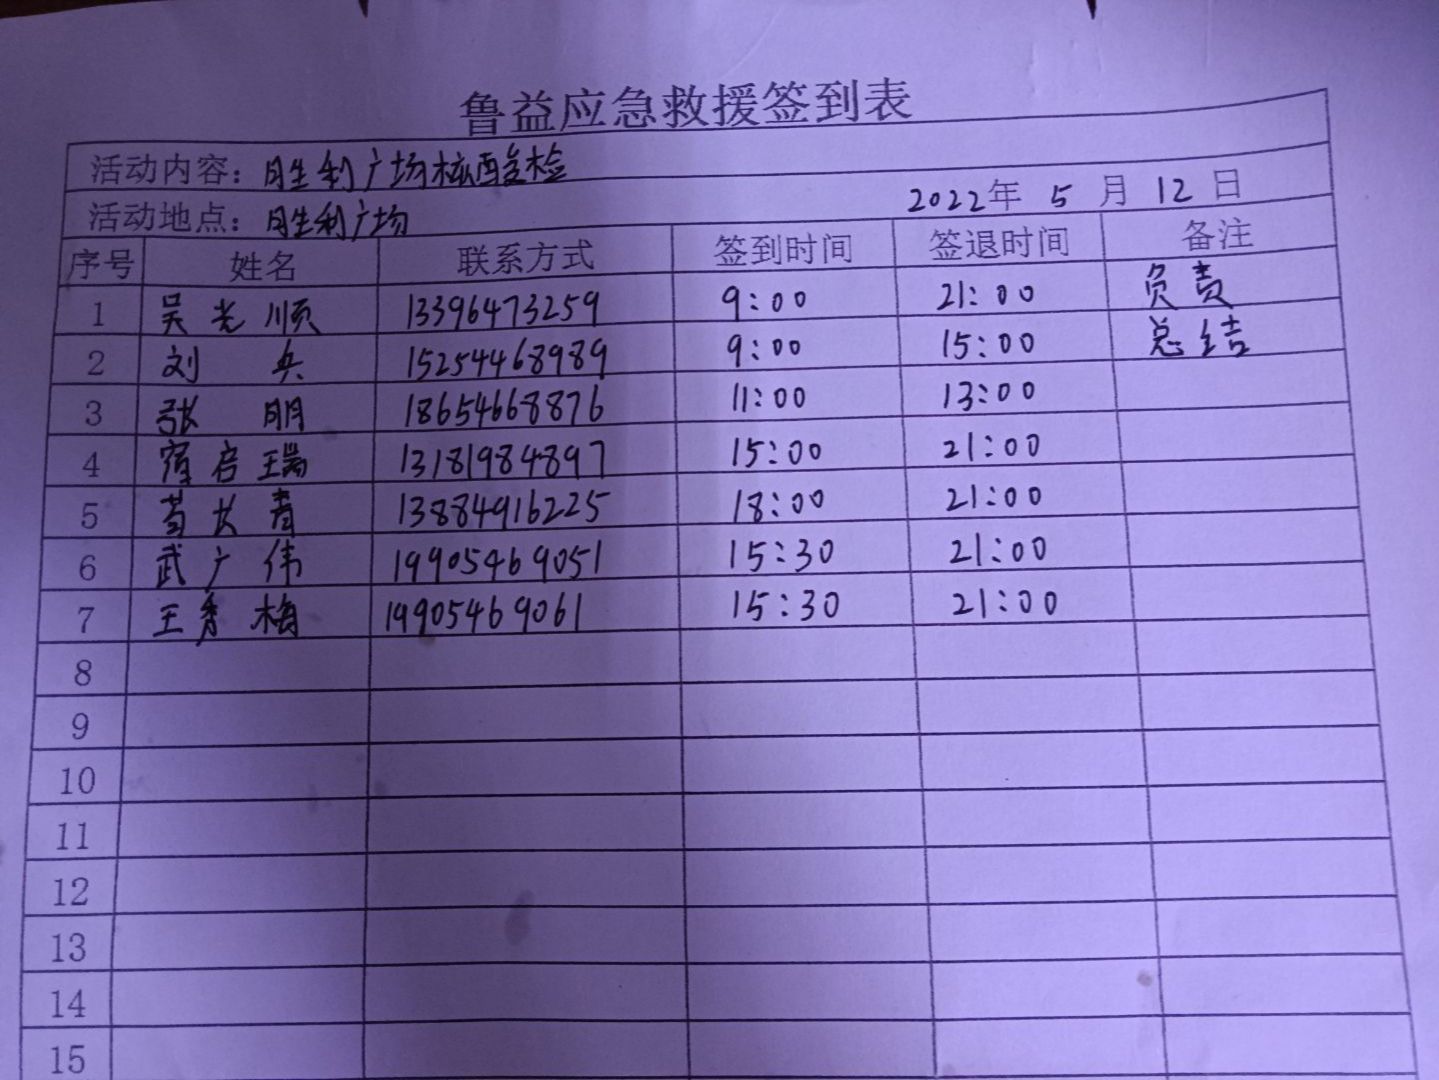 鲁益应急救援签到表
活动内容：胜利广场核酸检
活动地点：胜利广场 2022年 5 月 12 日
序号 姓名 联系方式 签到时间 签退时间 备注
1 吴光顺 13396473259 9:00 21:00 负责
2 刘兵 15254468989 9:00 15:00 总结
3 张朋 18654668876 11:00 13:00
4 宿启瑞 13181984897 15:00 21:00
5 苟长青 13884916225 18:00 21:00
6 武广伟 19905469051 15:30 21:00
7 王秀梅 19905469061 15:30 21:00
8
9
10
11
12
13
14
15